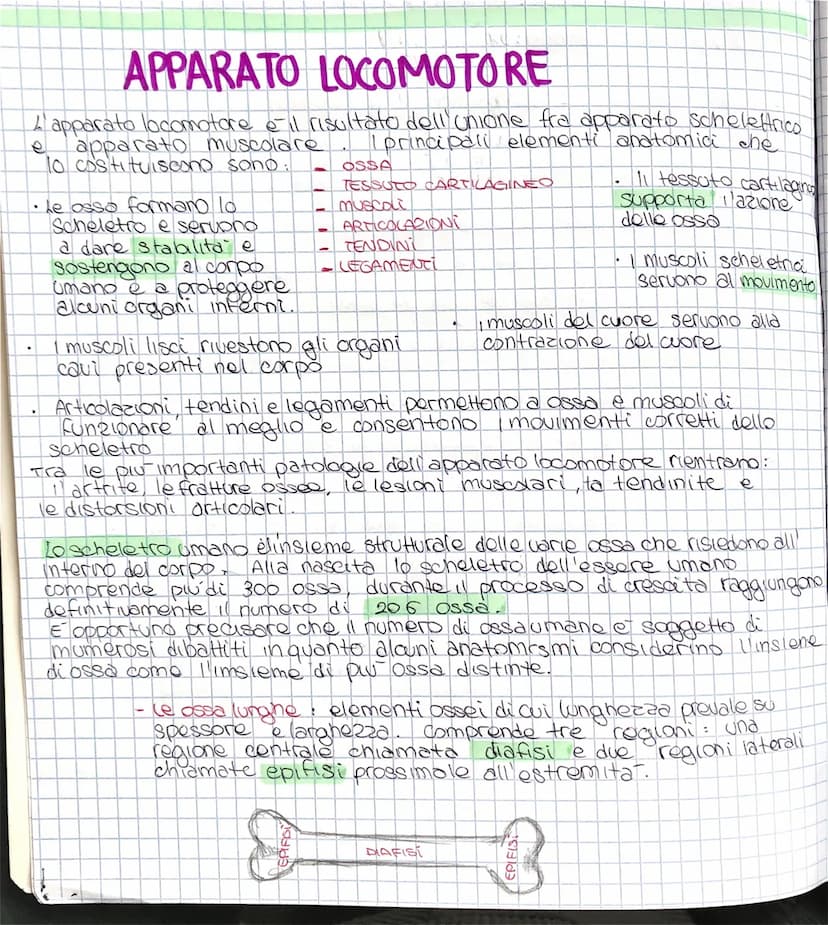 APPARATO LOCOMOTORE
L'apparato locomotore è il risultato dell'unione fra apparato schelettrico
e apparato muscolare. I principali elementi anatomici che
lo costituiscono sono:
- OSSA
- TESSUTO CARTILAGINEO
- MUSCOLI
- ARTICOLAZIONI
- TENDINI
- LEGAMENTI
· Le osso formano lo
scheletro e servono
a dare stabilità e
sostengono al corpo
umano e a proteggere
alcuni organi interni.
· Il tessuto cartilagino
supporta l'azione
delle ossa
· I muscoli scheletrici
servono al movimento
· I muscoli lisci rivestono gli organi
cavi presenti nel corpo
· i muscoli del cuore servono alla
contrazione del cuore
· Articolazioni, tendini e legamenti permettono a ossa e muscoli di
funzionare al meglio e consentono i movimenti corretti dello
scheletro
Tra le più importanti patologie dell'apparato locomotore rientrano:
l'artrite, le fratture ossee, le lesioni muscolari, la tendinite e
le distorsioni articolari.
Lo scheletro umano è l'insieme strutturale delle varie ossa che risiedono all'
interno del corpo. Alla nascita lo scheletro dell'essere umano
comprende più di 300 ossa, durante il processo di crescita raggiungono
definitivamente il numero di 206 ossa.
E' opportuno precisare che il numero di ossa umane è soggetto di
numerosi dibattiti in quanto alcuni anatomismi considerino l'insiene
di ossa come l'imsieme di più ossa distinte.
- Le ossa lunghe: elementi ossei di cui lunghezza prevale su
spessore e larghezza. Comprende tre regioni: una
regione centrale chiamata diafisi e due regioni laterali
chiamate epifisi prossimale all'estremità.
EPIFISI
DIAFISI
EPIFISI